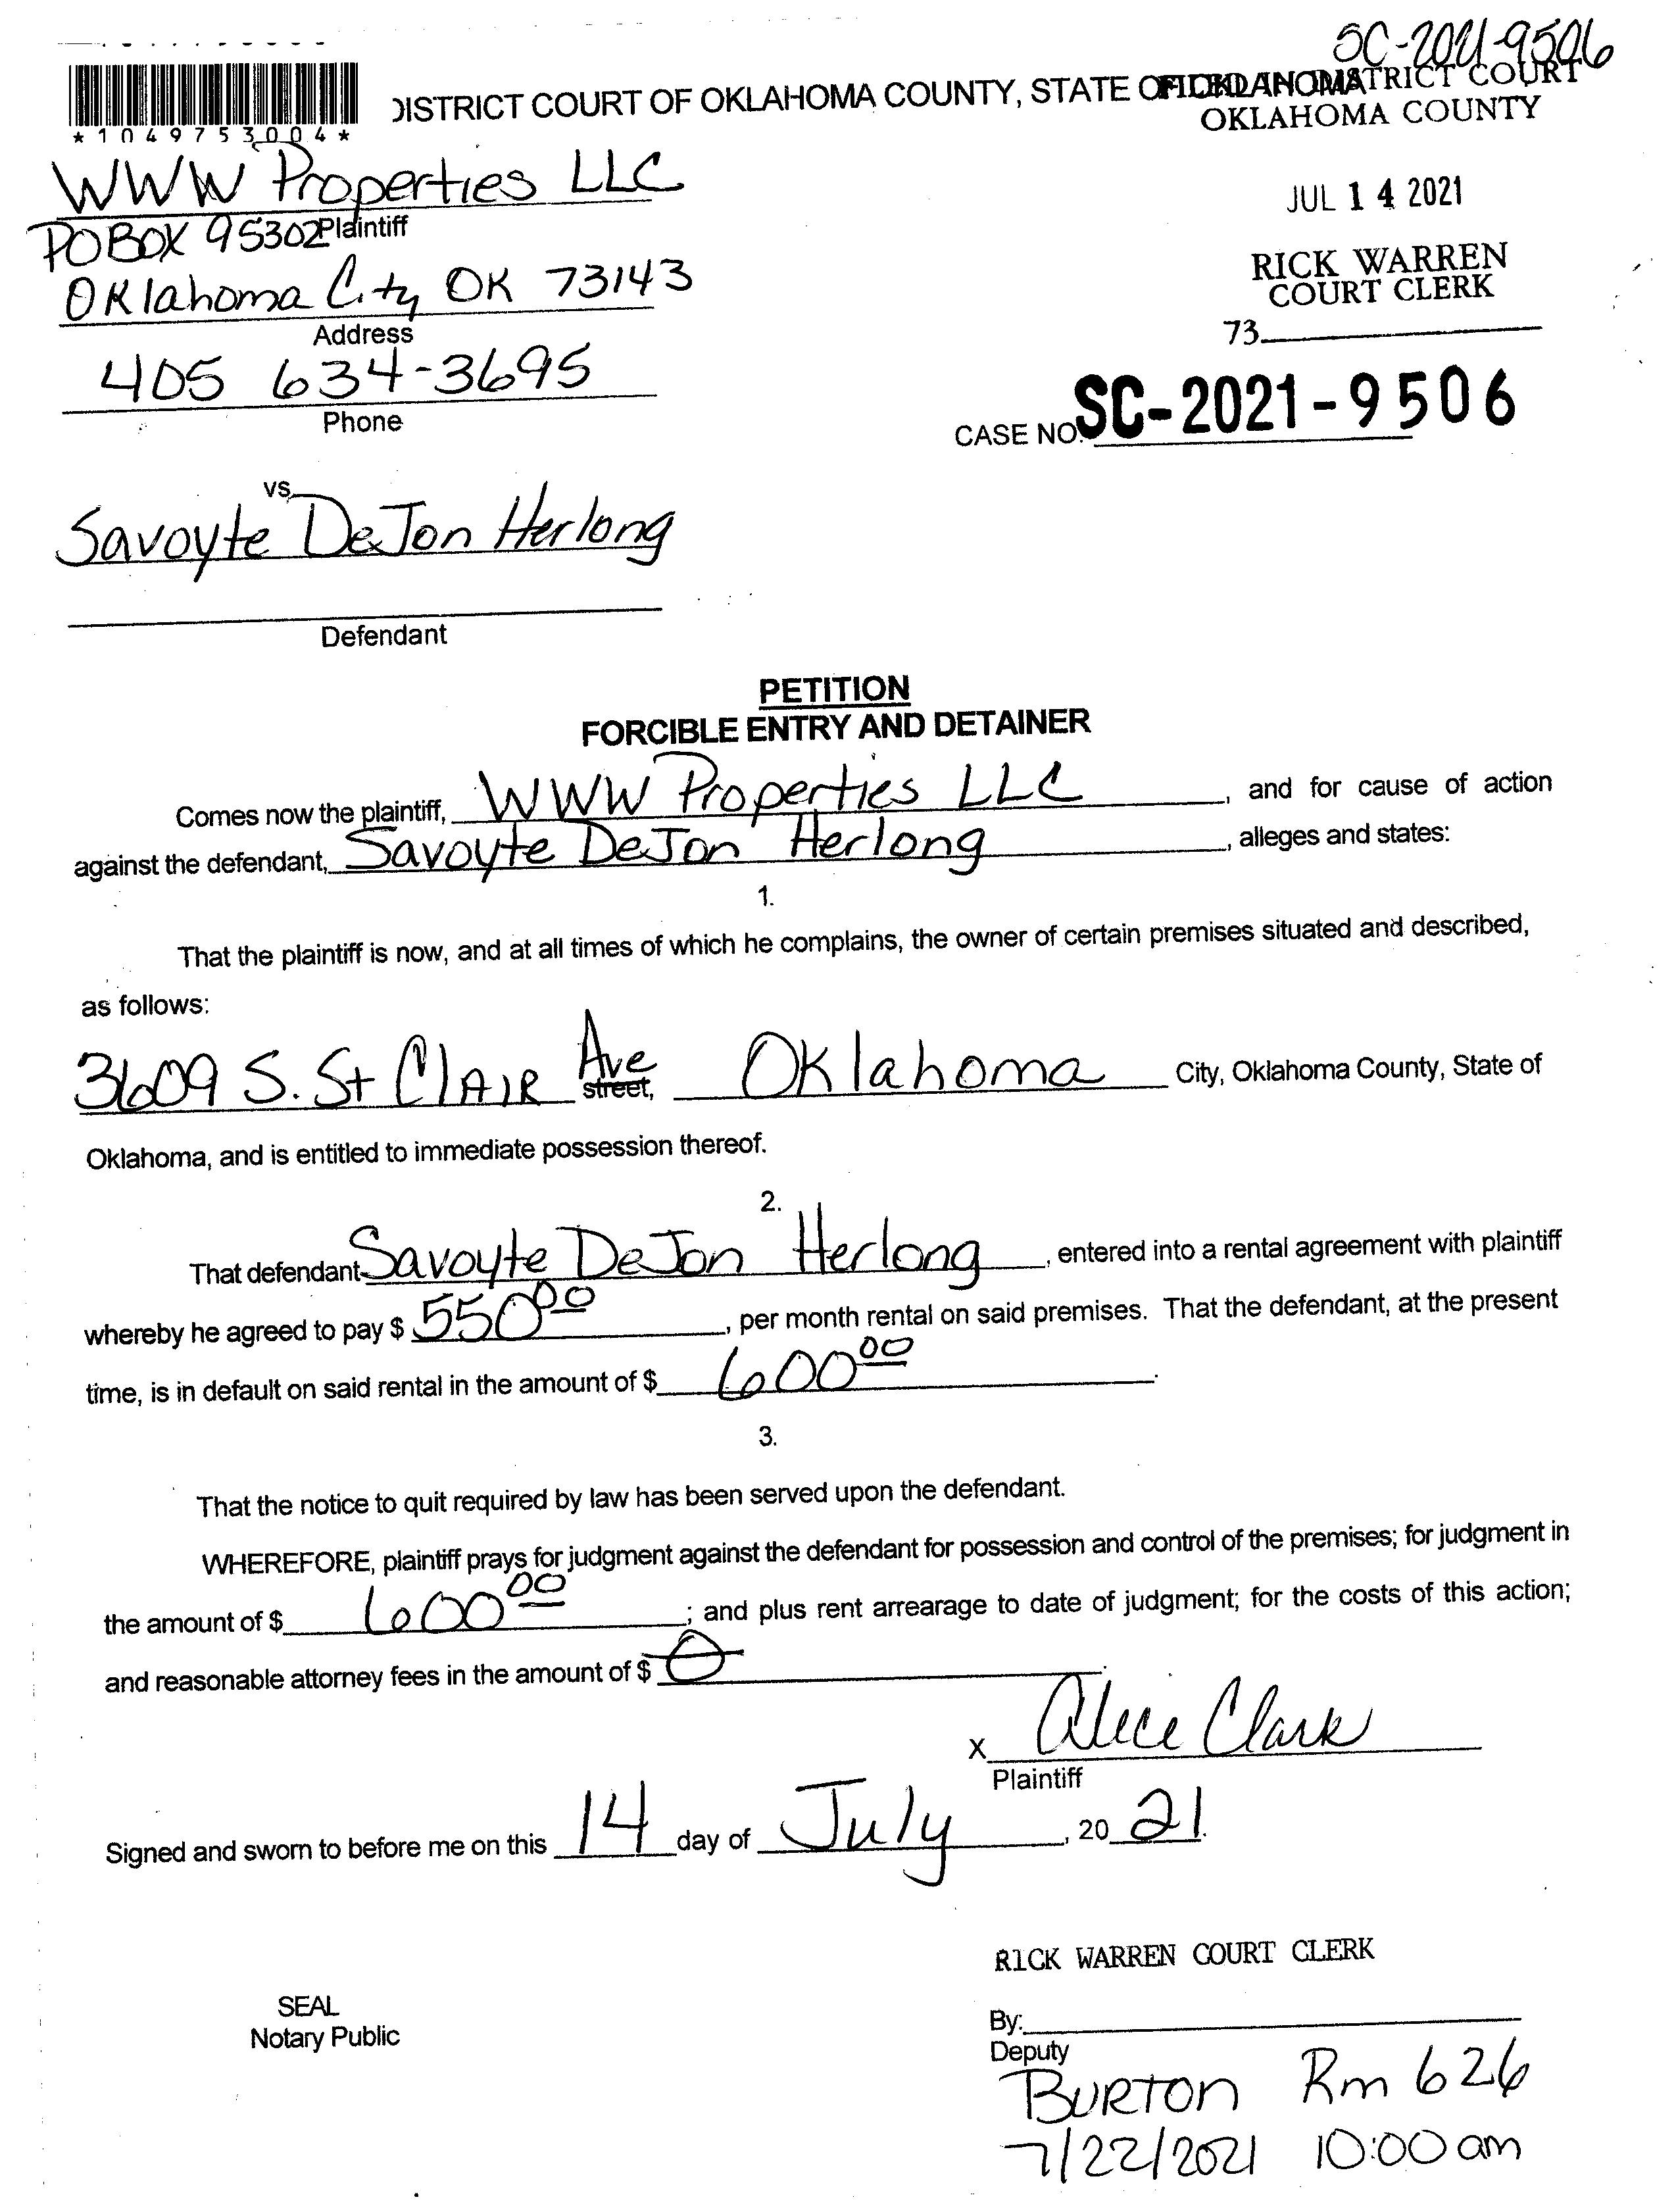 SC-2021-9506
DISTRICT COURT OF OKLAHOMA COUNTY, STATE OF OKLAHOMA
FILED IN DISTRICT COURT
OKLAHOMA COUNTY
*1049753004*
WWW Properties LLC
Plaintiff
PO BOX 95302
Oklahoma City OK 73143
Address
405 634-3695
Phone
JUL 14 2021
RICK WARREN
COURT CLERK
73
CASE NO. SC-2021-9506
vs.
Savoyte DeJon Herlong
Defendant
PETITION
FORCIBLE ENTRY AND DETAINER
Comes now the plaintiff, WWW Properties LLC, and for cause of action
against the defendant, Savoyte DeJon Herlong, alleges and states:
1.
That the plaintiff is now, and at all times of which he complains, the owner of certain premises situated and described,
as follows:
3609 S. St ClAIR Ave street, Oklahoma City, Oklahoma County, State of
Oklahoma, and is entitled to immediate possession thereof.
2.
That defendant Savoyte DeJon Herlong, entered into a rental agreement with plaintiff
whereby he agreed to pay $ 550 00, per month rental on said premises. That the defendant, at the present
time, is in default on said rental in the amount of $ 600 00.
3.
That the notice to quit required by law has been served upon the defendant.
WHEREFORE, plaintiff prays for judgment against the defendant for possession and control of the premises; for judgment in
the amount of $ 600 00; and plus rent arrearage to date of judgment; for the costs of this action;
and reasonable attorney fees in the amount of $ 0.
x Alice Clark
Plaintiff
Signed and sworn to before me on this 14 day of July, 20 21.
RICK WARREN COURT CLERK
SEAL
Notary Public
By:
Deputy
BURTON Rm 626
7/22/2021 10:00 am